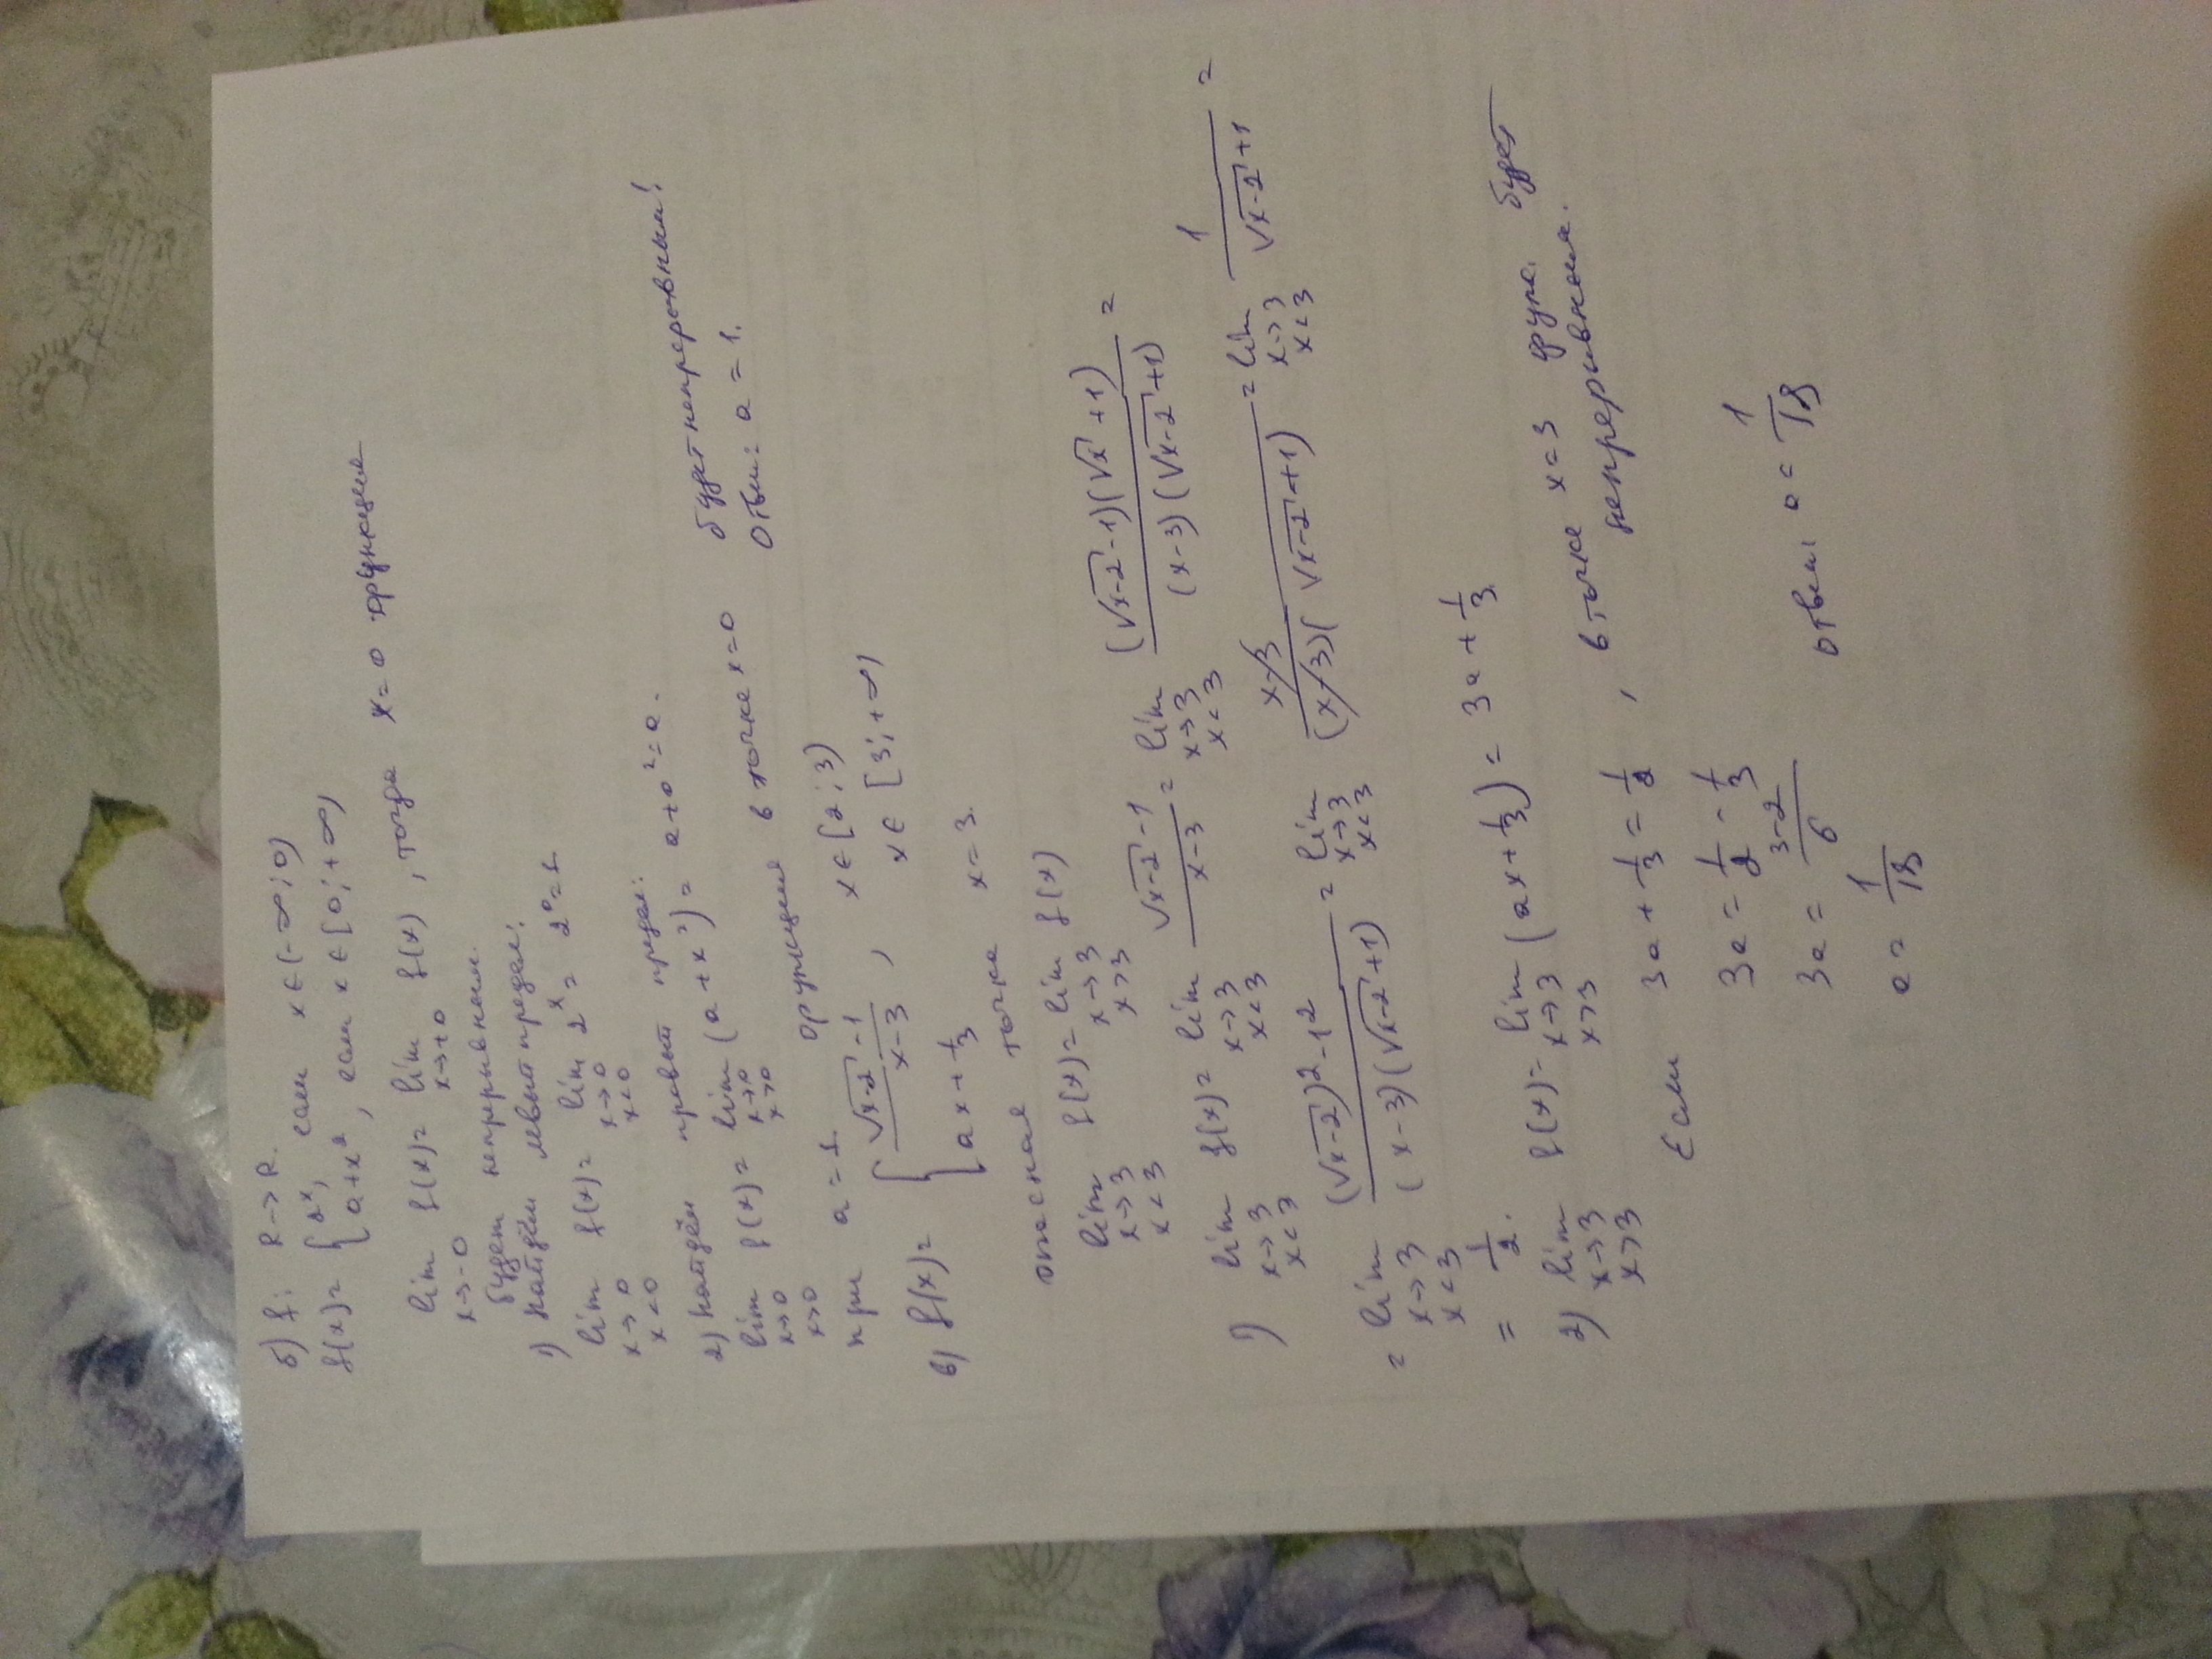 б) f: R → R.
f(x) = { 2^x, если x ∈ (-∞; 0)
a + x², если x ∈ [0; +∞)
lim x→-0 f(x) = lim x→+0 f(x), тогда x = 0 функция
будет непрерывной.
1) Найдём левый предел:
lim x→0 x<0 f(x) = lim x→0 x<0 2^x = 2^0 = 1.
2) Найдём правый предел:
lim x→0 x>0 f(x) = lim x→0 x>0 (a + x²) = a + 0² = a.
при a = 1. функция в точке x = 0 будет непрерывным!
Ответ: a = 1.
в) f(x) = { (√(x-2) - 1)/(x-3), x ∈ [2; 3)
ax + 1/3 x ∈ [3; +∞)
опасная точка x = 3.
lim x→3 x<3 f(x) = lim x→3 x>3 f(x)
1) lim x→3 x<3 f(x) = lim x→3 x<3 (√(x-2) - 1)/(x-3) = lim x→3 x<3 ((√(x-2) - 1)(√x + 1))/((x-3)(√(x-2) + 1)) =
= lim x→3 x<3 ((√(x-2))² - 1²)/((x-3)(√(x-2) + 1)) = lim x→3 x<3 (x-3)/((x-3)(√(x-2) + 1)) = lim x→3 x<3 1/(√(x-2) + 1) =
= 1/2.
2) lim x→3 x>3 f(x) = lim x→3 x>3 (ax + 1/3) = 3a + 1/3.
Если 3a + 1/3 = 1/2, в точке x = 3 функ. будет
непрерывная.
3a = 1/2 - 1/3
3a = (3-2)/6
a = 1/18 ответ: a = 1/18